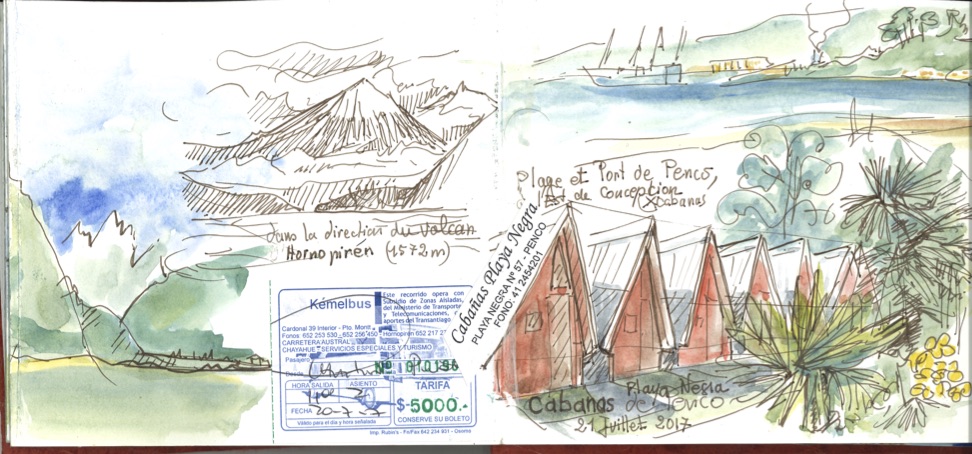 Dans la direction du volcan
Hornopirén (1572 m)
Kémelbus
Este recorrido opera con
Subsidio de Zonas Aisladas,
del Ministerio de Transporte
y Telecomunicaciones,
aportes del Transantiago
Cardonal 39 Interior - Pto. Montt
Fonos: 652 253 530 - 652 256 450 - Hornopiren 652 217 27
CARRETERA AUSTRAL
CHAYAHUE - SERVICIOS ESPECIALES Y TURISMO
Pasajero
Desde
Nº 010196
HORA SALIDA
ASIENTO
TARIFA
FECHA 20-7-
$ 5000.-
Válido para el día y hora señalada
CONSERVE SU BOLETO
Imp. Rubio's - Fo/Fax 642 234 931 - Osorno
Plage et Port de Penco,
de Concepcion
Cabanas
Cabañas Playa Negra
PLAYA NEGRA Nº 57 - PENCO
FONO: 41 2454201
Playa Negra
Cabanas de Penco
21 Juillet 2017